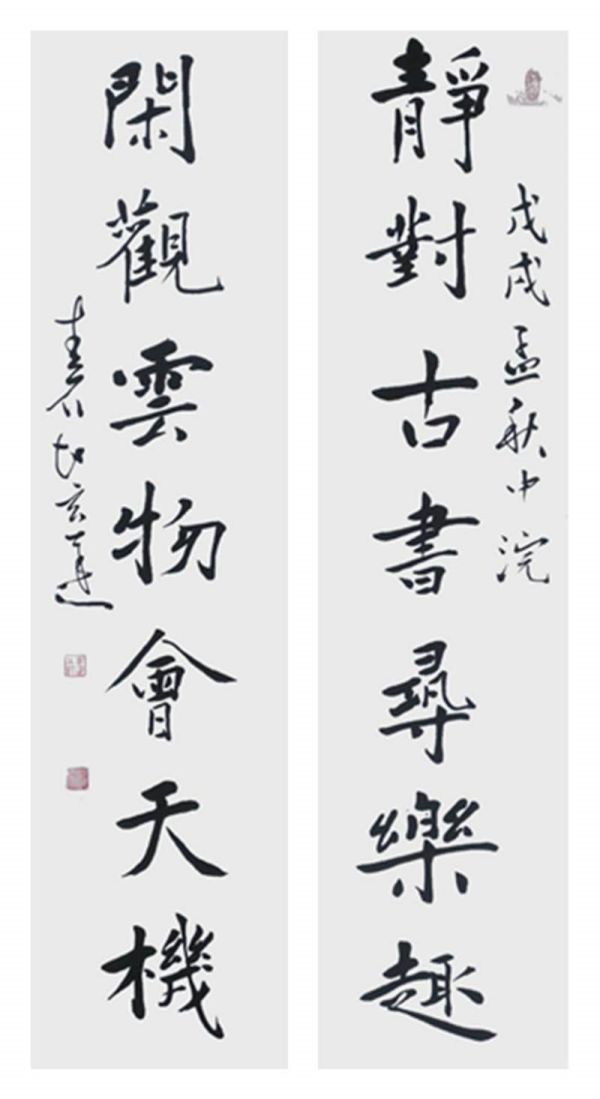 戊戌孟秋中浣
靜對古書尋樂趣
閑觀雲物會天機